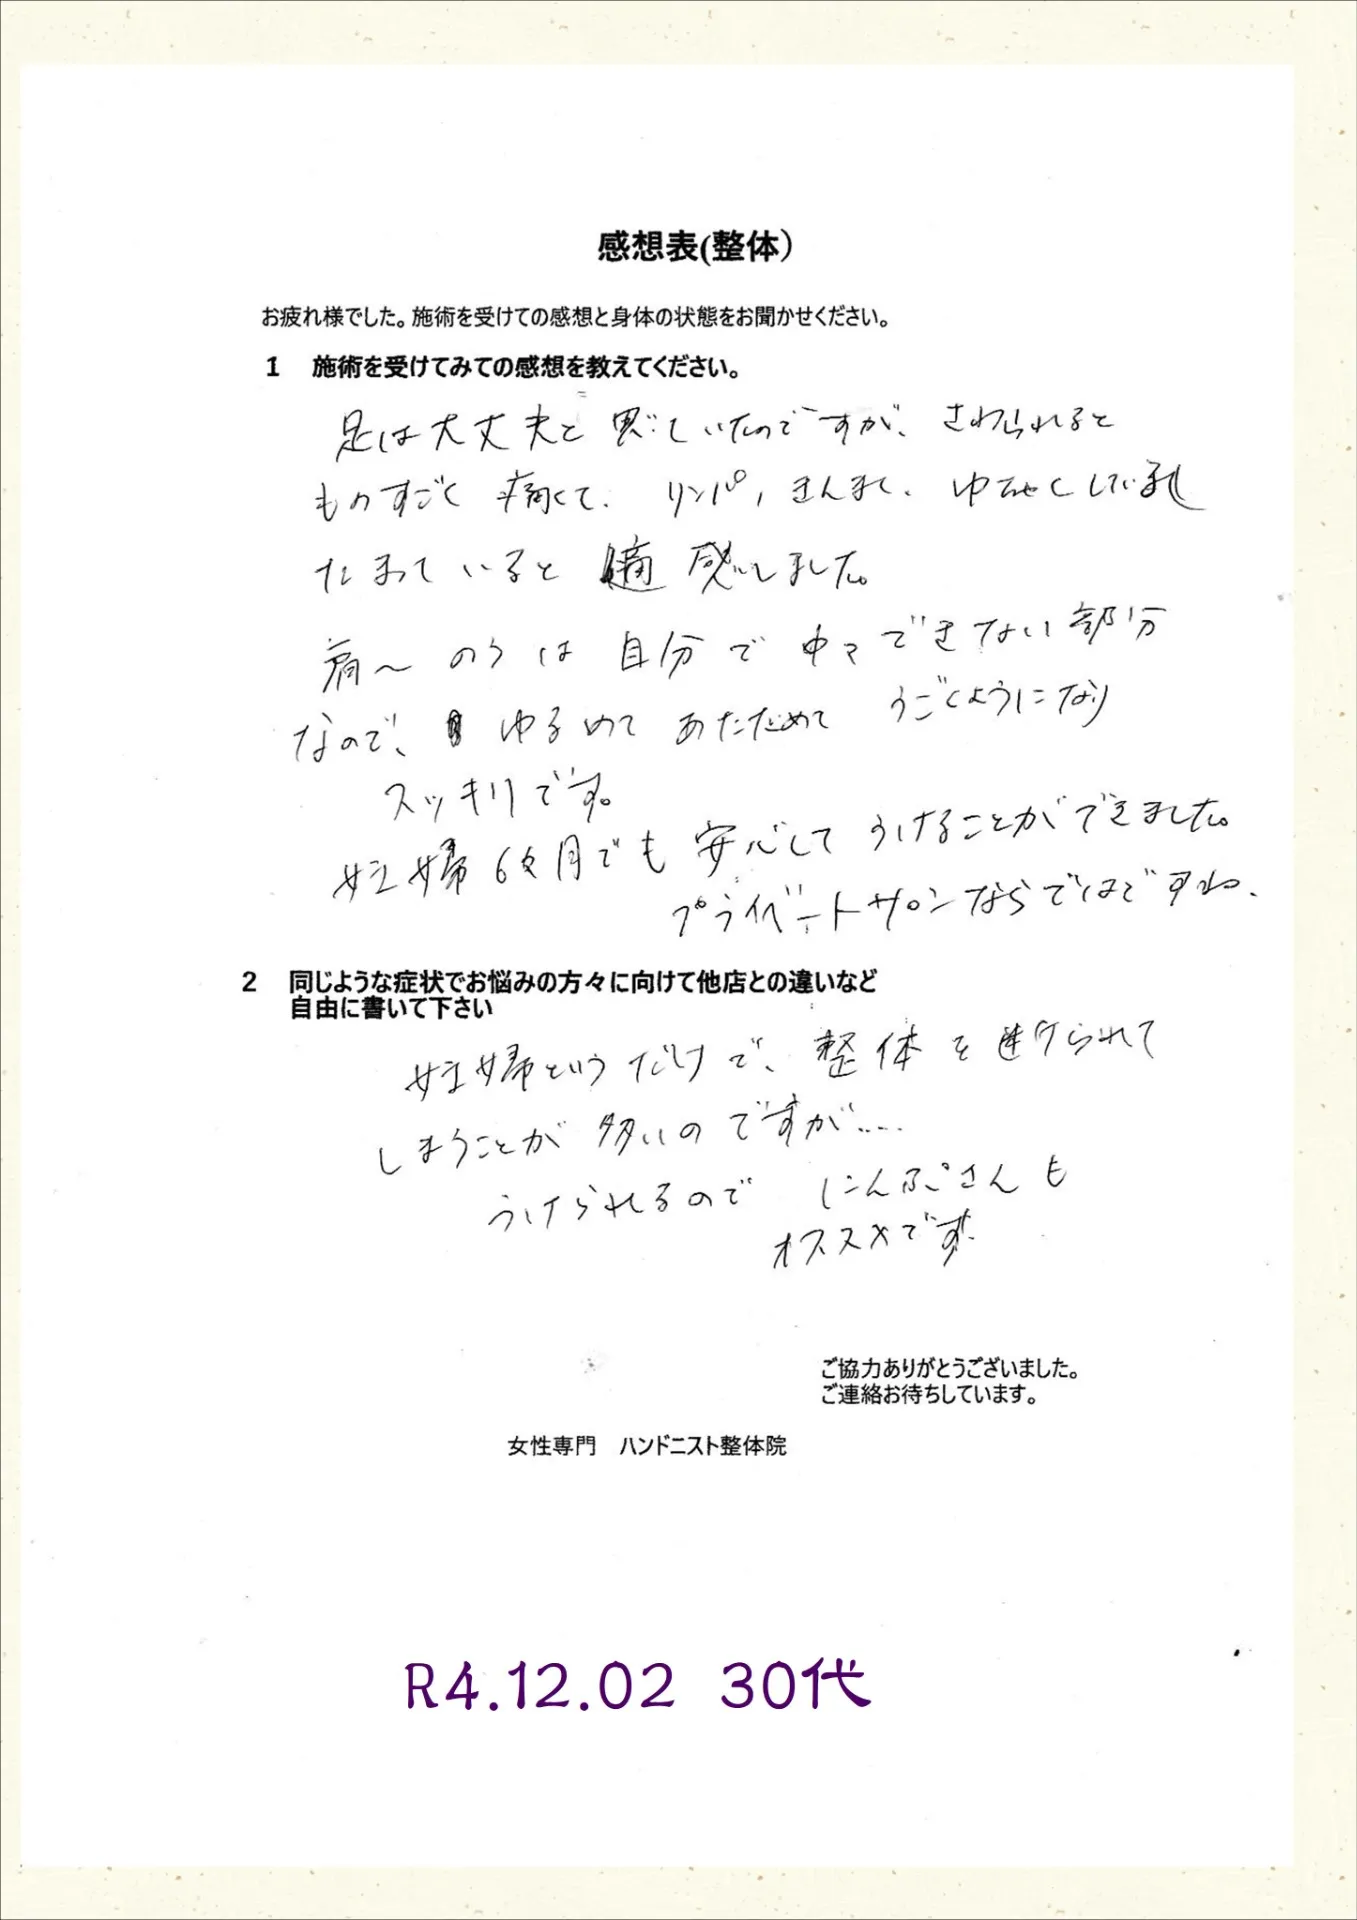 感想表(整体)
お疲れ様でした。施術を受けての感想と身体の状態をお聞かせください。
1 施術を受けてみての感想を教えてください。
足は大丈夫と思っていたのですが、さわられると
ものすごく痛くて、リンパ、
たまっていると痛感しました。
肩〜のうは自分で中々できない部分
なので、ゆるめてあたためてうごくようになり
スッキリです。
妊婦6ヶ月でも安心してうけることができました。
プライベートサロンならではですね、
2 同じような症状でお悩みの方々に向けて他店との違いなど
自由に書いて下さい
妊婦というだけで、整体を避けられて
しまうことが多いのですが....
うけられるのでにんぷさんも
オススメです。
ご協力ありがとうございました。
ご連絡お待ちしています。
女性専門 ハンドニスト整体院
R4.12.02 30代